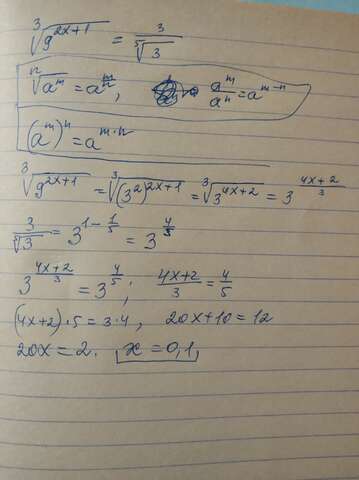 ∛(9^(2x+1)) = 3/⁵√3
ⁿ√(a^m) = a^(m/n), a^m/a^n = a^(m-n)
(a^m)^n = a^(m·n)
∛(9^(2x+1)) = ∛((3²)^(2x+1)) = ∛(3^(4x+2)) = 3^((4x+2)/3)
3/⁵√3 = 3^(1-1/5) = 3^(4/5)
3^((4x+2)/3) = 3^(4/5); (4x+2)/3 = 4/5
(4x+2)·5 = 3·4, 20x+10=12
20x=2. x=0,1